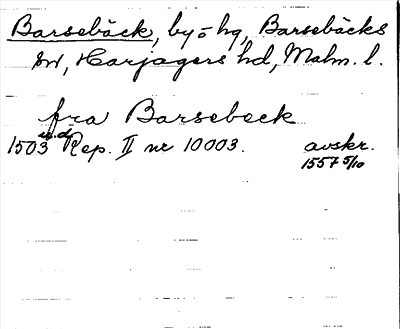 Barsebäck, by ō hg, Barsebäcks
sn, Harjagers hd, Malm. l.
fra Barsebeck
1503 u.d. Rep. II nr 10003. avskr.
1557 5/10